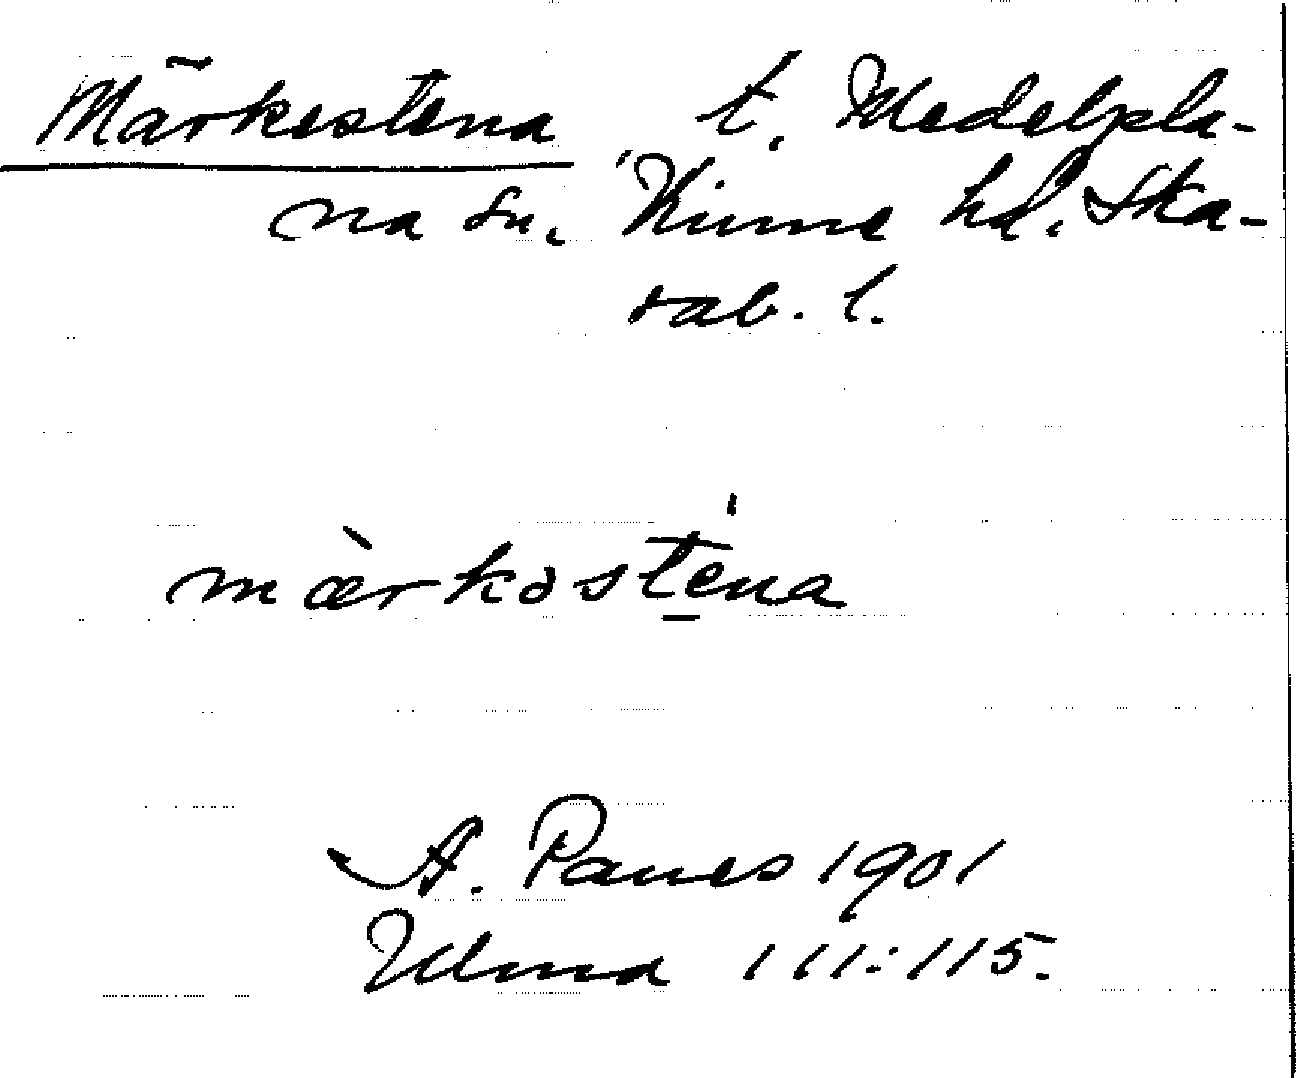 Märkestena t. Medelpla-
na sn. Kinne hd. Ska-
rab. l.
mä̀rkəste̱'na
A. Panes 1901
Ulma 111:115.